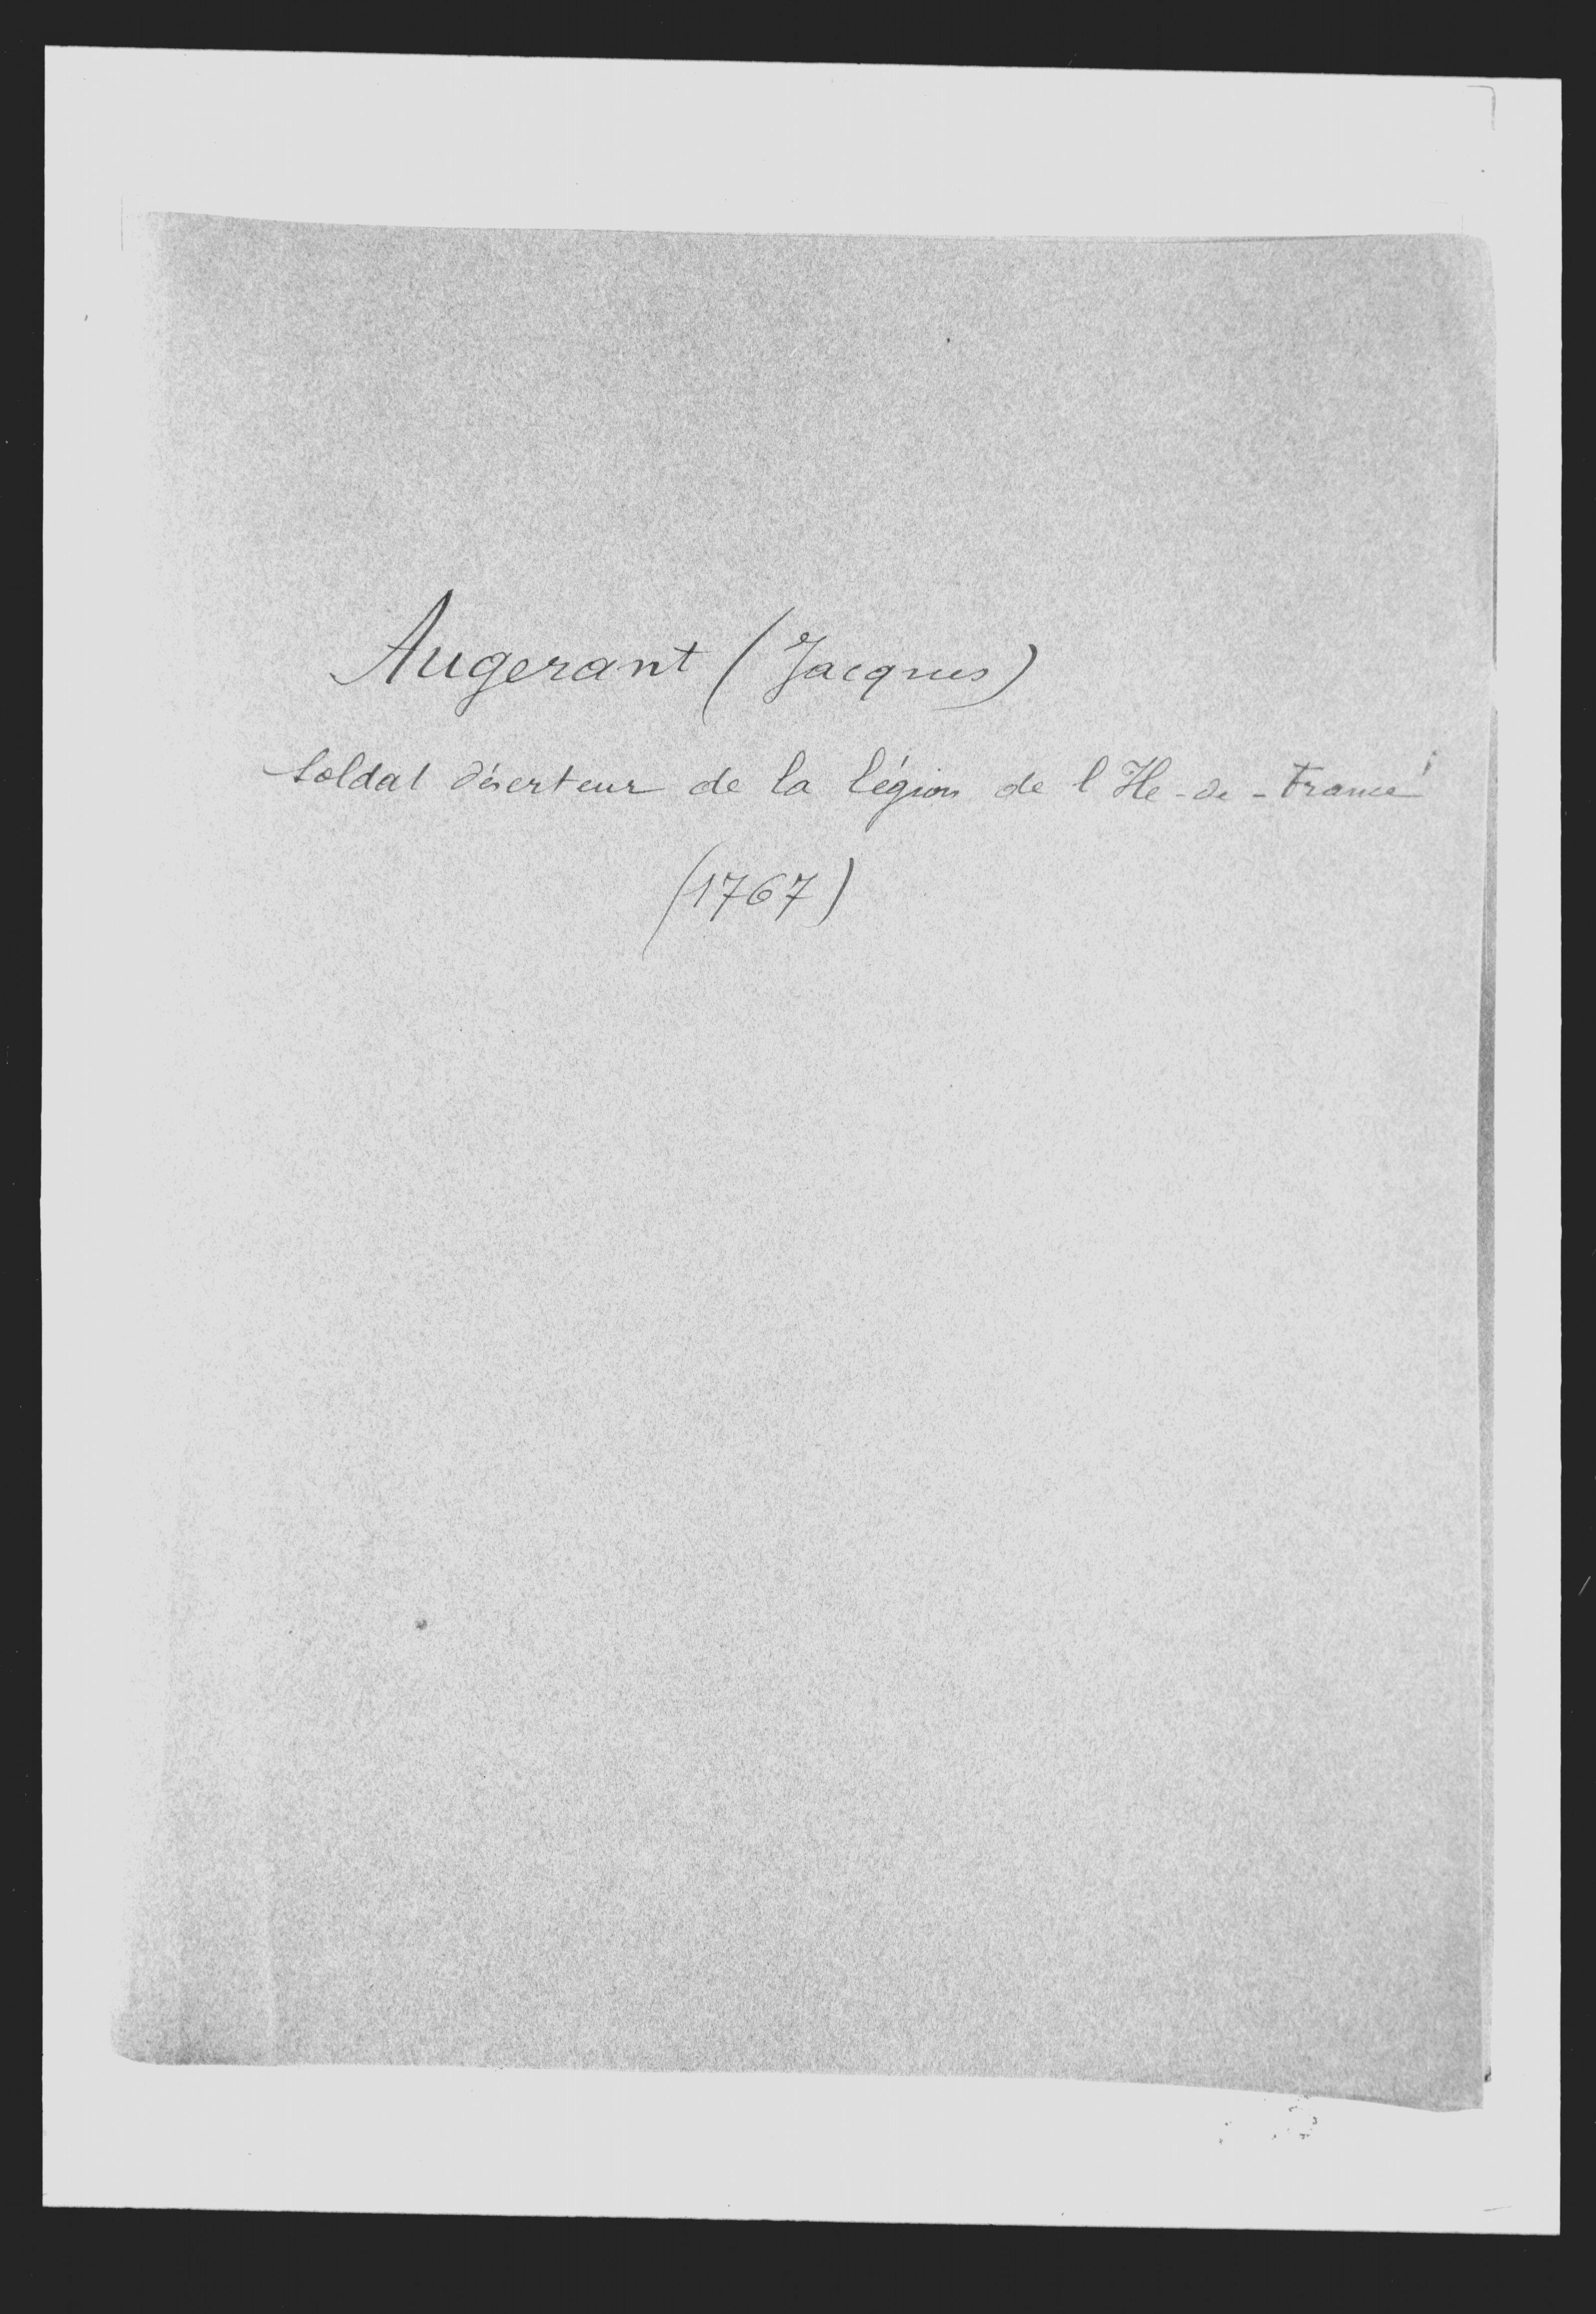 Augerant (Jacques)
soldat déserteur de la légion de l'Ile-de-France
(1767)